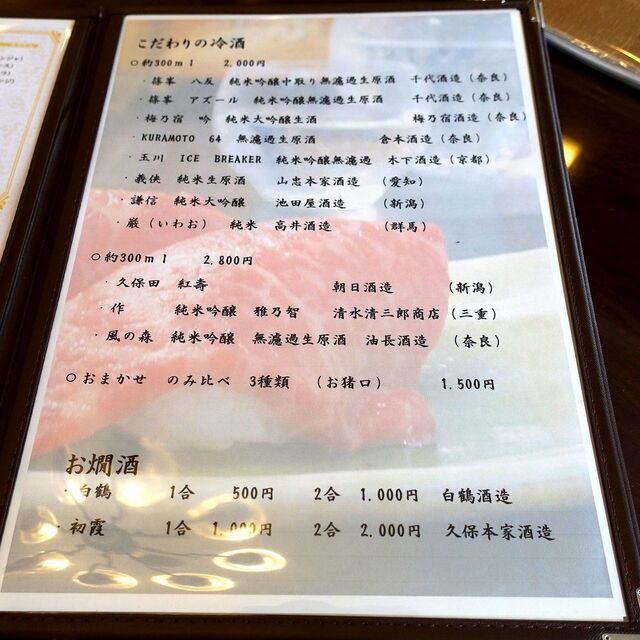 こだわりの冷酒
○約300ml 2,000円
・篠峯 八反 純米吟醸中取り無濾過生原酒 千代酒造(奈良)
・篠峯 アズール 純米吟醸無濾過生原酒 千代酒造(奈良)
・梅乃宿 吟 純米大吟醸生酒 梅乃宿酒造(奈良)
・KURAMOTO 64 無濾過生原酒 倉本酒造(奈良)
・玉川 ICE BREAKER 純米吟醸無濾過 木下酒造(京都)
・義侠 純米生原酒 山忠本家酒造 (愛知)
・謙信 純米大吟醸 池田屋酒造 (新潟)
・巌(いわお) 純米 高井酒造 (群馬)
○約300ml 2,800円
・久保田 紅壽 朝日酒造 (新潟)
・作 純米吟醸 雅乃智 清水清三郎商店(三重)
・風の森 純米吟醸 無濾過生原酒 油長酒造 (奈良)
○おまかせ のみ比べ 3種類 (お猪口) 1,500円
お燗酒
・白鶴 1合 500円 2合 1,000円 白鶴酒造
・初霞 1合 1,000円 2合 2,000円 久保本家酒造